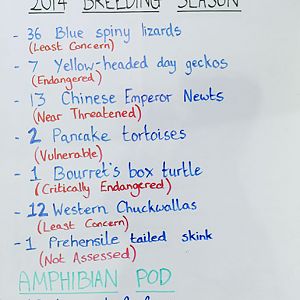 2014 BREEDING SEASON
- 36 Blue spiny lizards
(Least Concern)
- 7 Yellow-headed day geckos
(Endangered)
- 13 Chinese Emperor Newts
(Near Threatened)
- 2 Pancake tortoises
(Vulnerable)
- 1 Bourret's box turtle
(Critically Endangered)
- 12 Western Chuckwallas
(Least Concern)
- 1 Prehensile tailed skink
(Not Assessed)
AMPHIBIAN POD